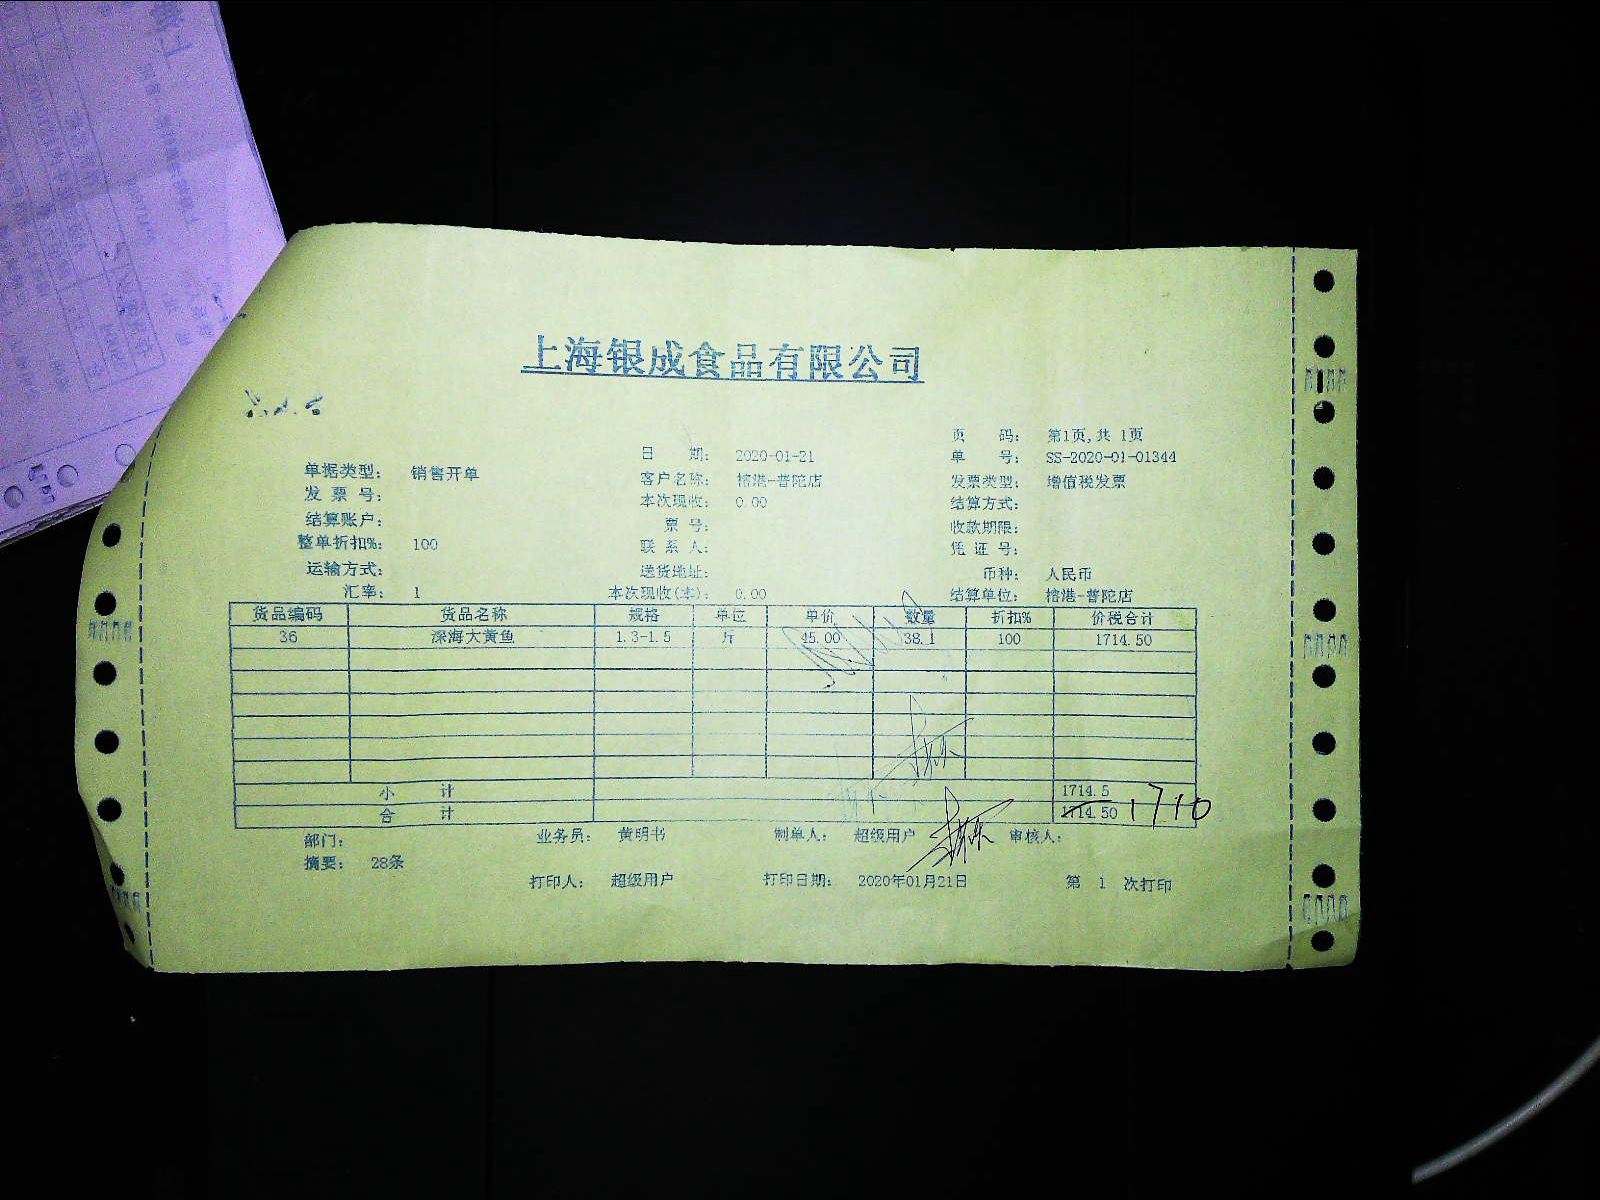 上海银成食品有限公司
页 码： 第1页,共 1页
日 期： 2020-01-21 单 号： SS-2020-01-01344
单据类型： 销售开单 客户名称： 榕港-普陀店 发票类型： 增值税发票
发 票 号： 本次现收： 0.00 结算方式：
结算账户： 票 号： 收款期限：
整单折扣%： 100 联 系 人： 凭 证 号：
运输方式： 送货地址： 币种： 人民币
汇率： 1 本次现收(本)： 0.00 结算单位： 榕港-普陀店
货品编码 货品名称 规格 单位 单价 数量 折扣% 价税合计
36 深海大黄鱼 1.3-1.5 斤 45.00 38.1 100 1714.50
小 计 1714.5
合 计 1714.50 1710
部门： 业务员： 黄明书 制单人： 超级用户 审核人：
摘要： 28条
打印人： 超级用户 打印日期： 2020年01月21日 第 1 次打印